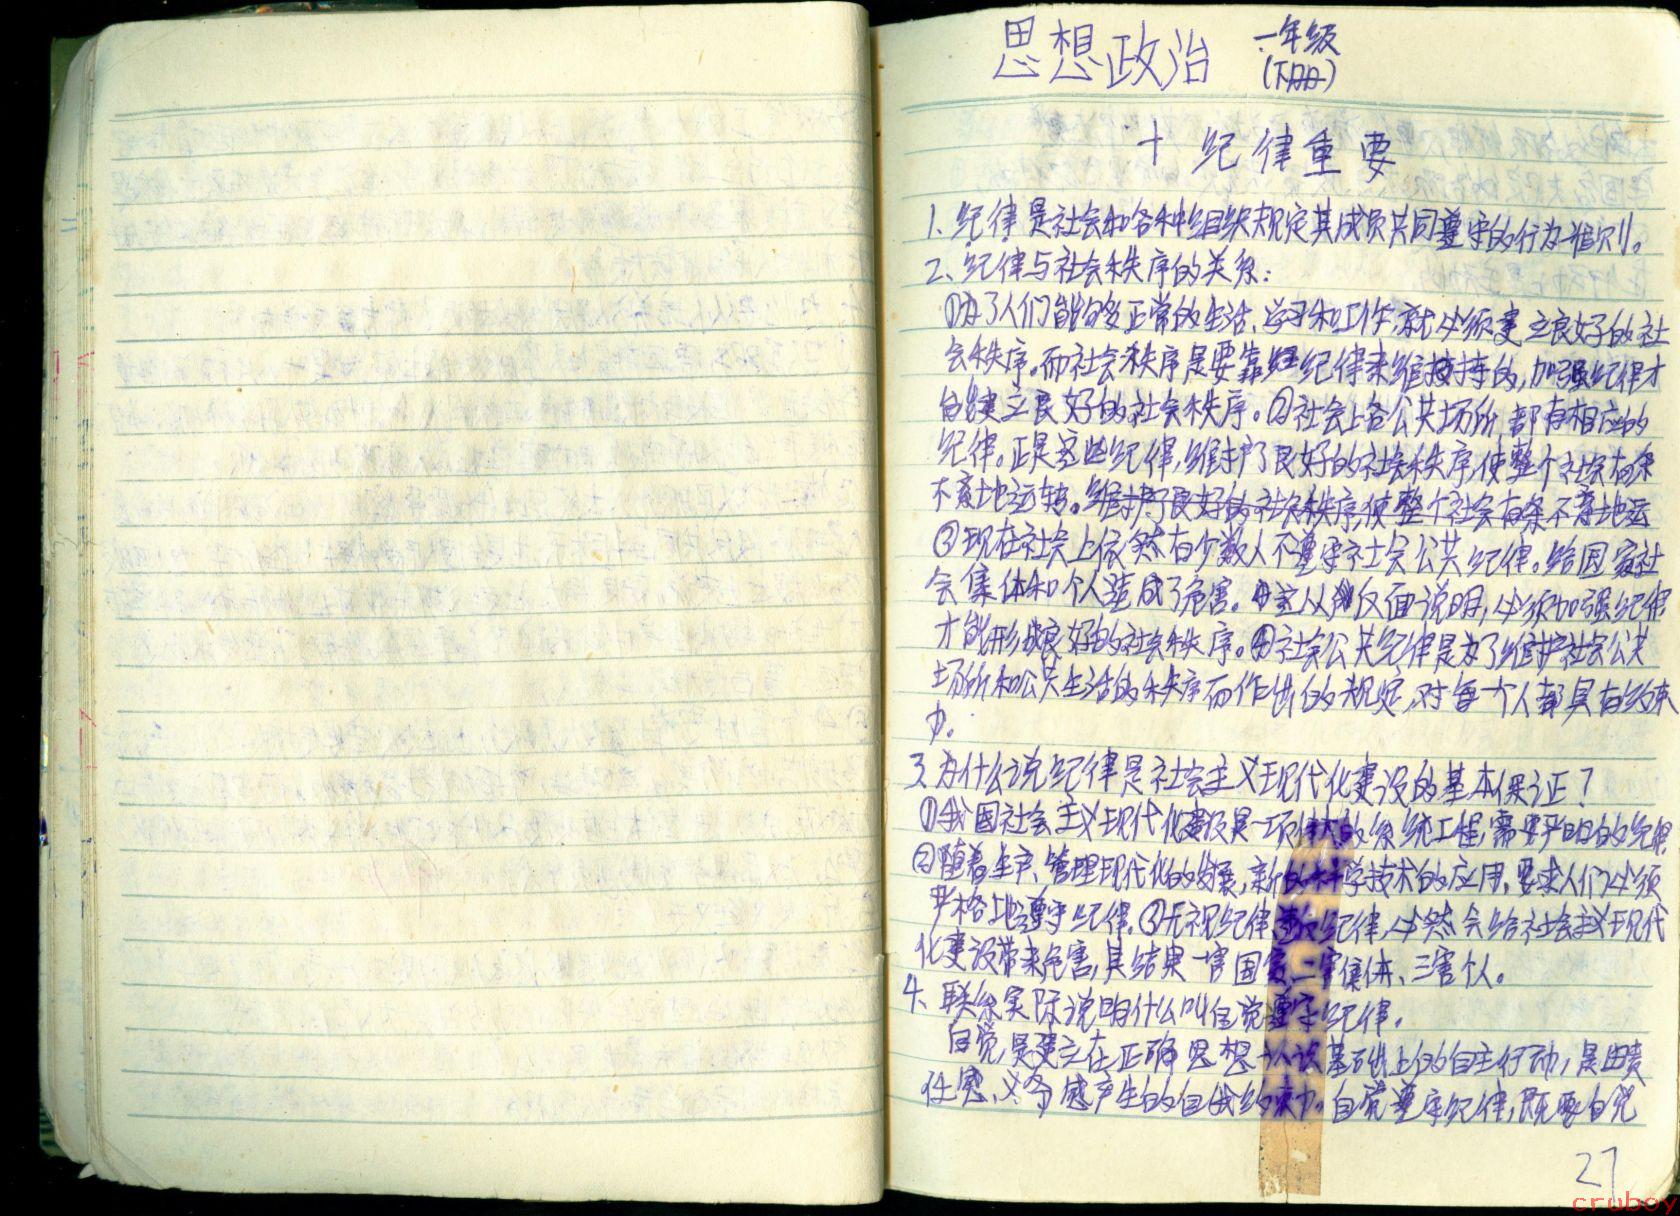 思想政治 一年级
(下册)
十 纪律重要
1、纪律是社会和各种组织规定其成员共同遵守的行为准则。
2、纪律与社会秩序的关系：
①为了人们能够正常的生活、学习和工作，就必须建立良好的社
会秩序。而社会秩序是要靠纪律来维持的，加强纪律才
能建立良好的社会秩序。②社会上各公共场所都有相应的
纪律。正是这些纪律，维护了良好的社会秩序，使整个社会有条
不紊地运转。维护了良好的社会秩序，使整个社会有条不紊地运
③现在社会上依然有少数人不遵守社会公共纪律。给国家社
会集体和个人造成了危害。这从反面说明，必须加强纪律
才能形成良好的社会秩序。④社会公共纪律是为了维护社会公共
场所和公共生活的秩序而作出的规定，对每一个人都具有约束
力。
3、为什么说纪律是社会主义现代化建设的基本保证？
①我国社会主义现代化建设是一项伟大的系统工程，需要严明的纪律
②随着生产、管理现代化的发展，新的科学技术的应用，要求人们必须
严格地遵守纪律。③无视纪律违反纪律，必然会给社会主义现代
化建设带来危害，其结果一害国家、二害集体、三害个人。
4、联系实际说明什么叫自觉遵守纪律。
自觉是建立在正确思想认识基础上的自主行动，是由责
任感、义务感产生的自我约束力。自觉遵守纪律，既要自觉
27
cruboy